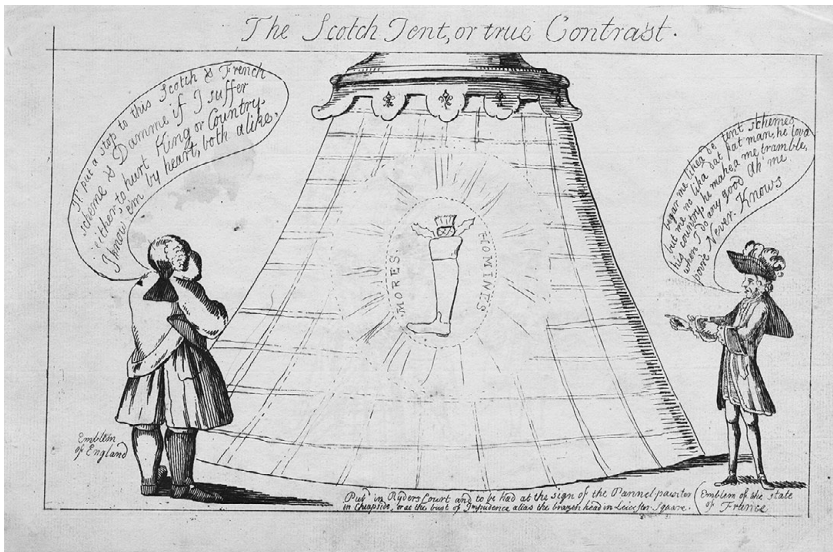 The Scotch Tent, or true Contrast.
I'll put a stop to this Scotch & French
scheme & Damme if I suffer
either, to hurt King or Country.
I know 'em by heart, both alike.
begger me likea de tent schemes,
but me no lika dat fat man, he lova
his country, he makea me tramble,
when I do any good Ah' me
Never Knows
MORES
HOMINES
Emblem
of England
Pub.d in Ryders Court and to be Had at the sign of the Pannel painter
in Cheapside, or at the bust of Impudence alias the brazen head in Leicester Square.
Emblem of the state
of France